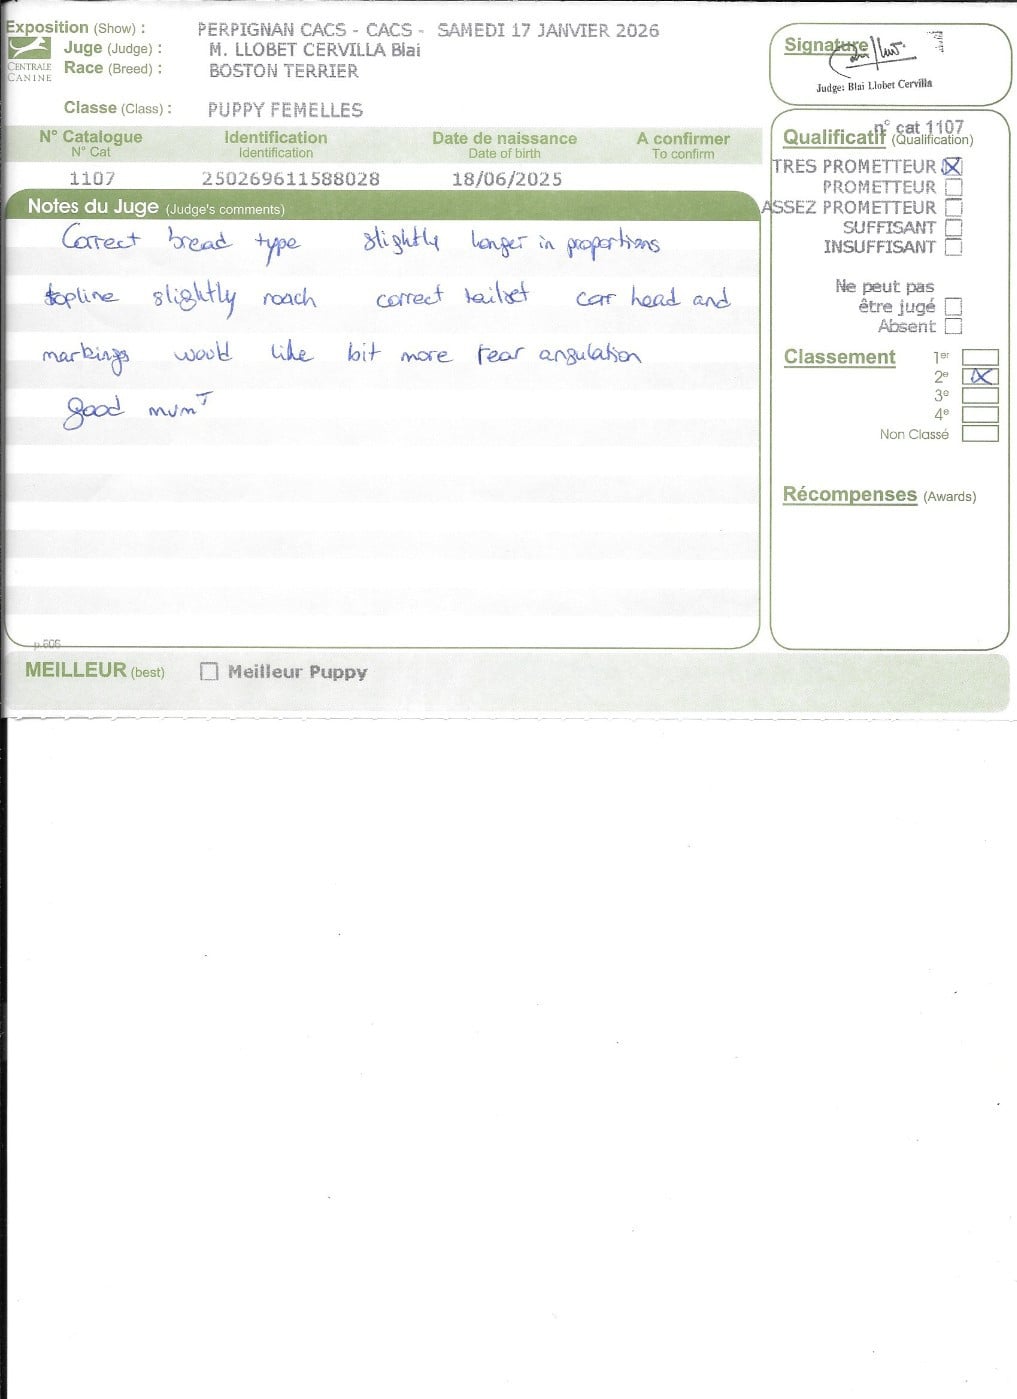 Exposition (Show) : PERPIGNAN CACS - CACS - SAMEDI 17 JANVIER 2026
Juge (Judge) : M. LLOBET CERVILLA Blai
CENTRALE CANINE
Race (Breed) : BOSTON TERRIER
Classe (Class) : PUPPY FEMELLES
Signature
Judge: Blai Llobet Cervilla
N° Catalogue Identification Date de naissance A confirmer
N° Cat Identification Date of birth To confirm
1107 250269611588028 18/06/2025
n° cat 1107
Qualificatif (Qualification)
TRES PROMETTEUR
PROMETTEUR
ASSEZ PROMETTEUR
SUFFISANT
INSUFFISANT
Ne peut pas
être jugé
Absent
Classement 1er
2e
3e
4e
Non Classé
Récompenses (Awards)
Notes du Juge (Judge's comments)
Correct bread type slightly longer in proportions
topline slightly roach correct tailset corr head and
markings would like bit more rear angulation
good mvmT
p.606
MEILLEUR (best) Meilleur Puppy